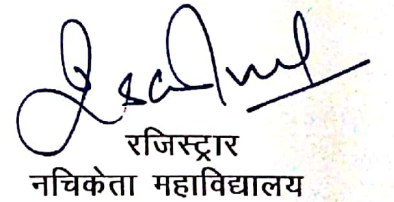 रजिस्ट्रार
नचिकेता महाविद्यालय